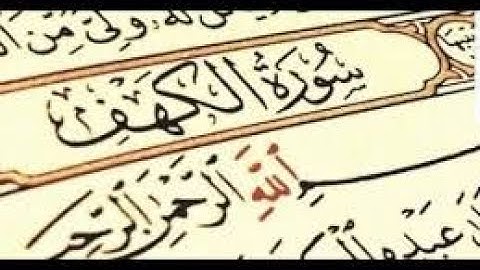 لَهُۥ وَلِيٌّ مِّنَ
سُورَةُ الكَهْفِ
بِسْمِ ٱللَّهِ ٱلرَّحْمَٰنِ ٱلرَّحِيمِ
عَبْدِهِ